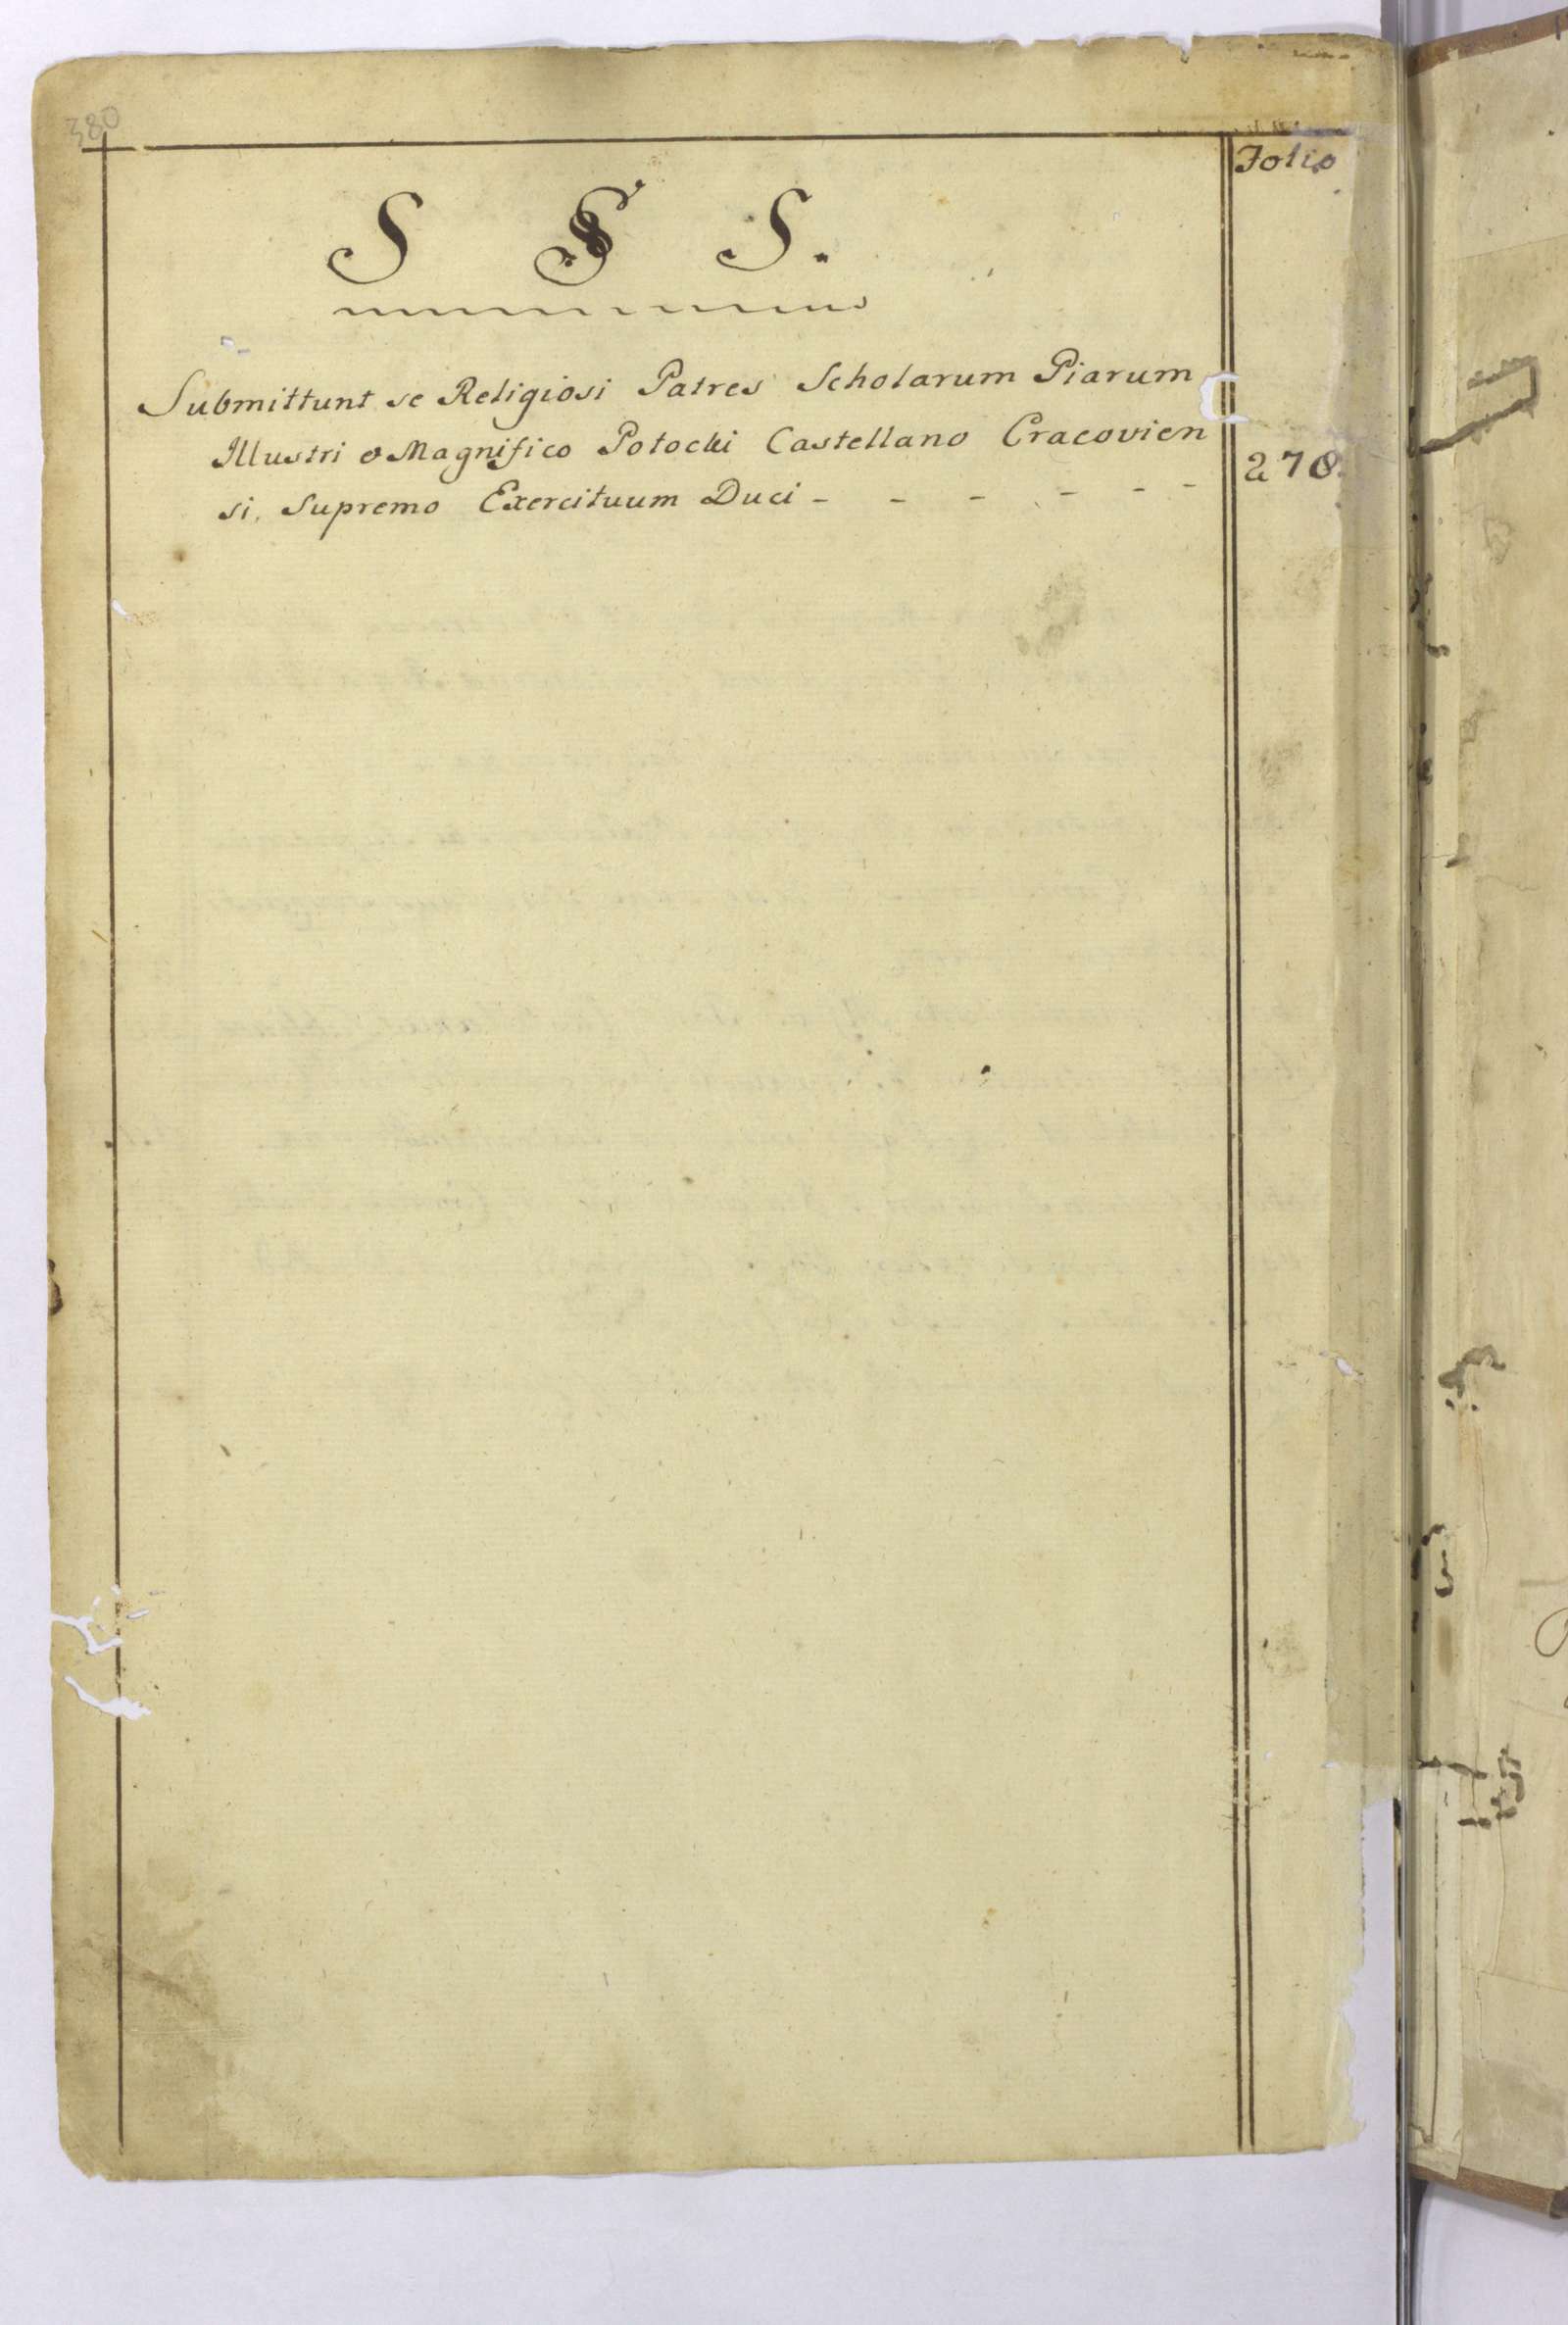 380
Folio
S S S.
Submittunt se Religiosi Patres Scholarum Piarum
Illustri & Magnifico Potocki Castellano Cracovien
si, Supremo Exercituum Duci - - - - - - 278.